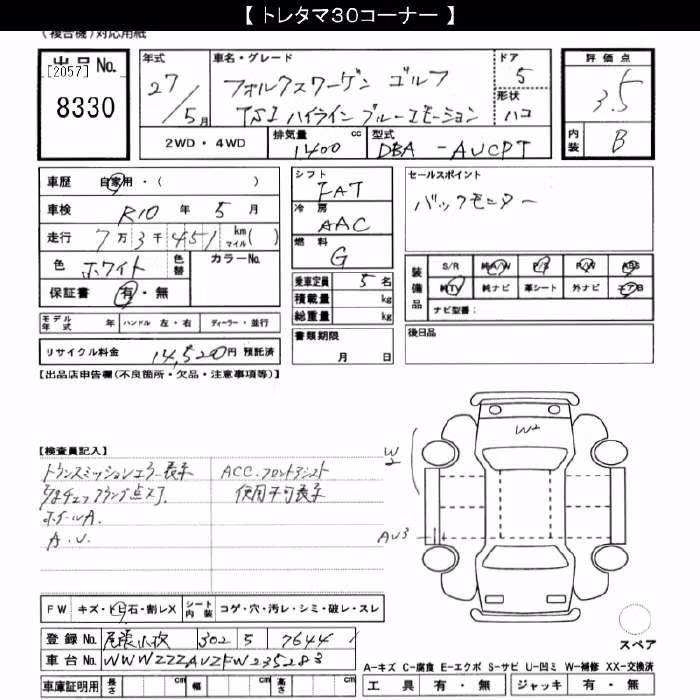 【 トレタマ30コーナー 】
(複合機)対応用紙
出品No. [2057] 8330
年式 27/5月
車名・グレード フォルクスワーゲン ゴルフ
TSI ハイライン ブルーエモーション
ドア 5
形状 ハコ
評価点 3.5
内装 B
2WD・4WD
排気量 1400 cc
型式 DBA-AUCPT
車歴 自家用・( )
車検 R10年 5月
走行 7万3千451 km マイル( )
色 ホワイト 色替 カラーNo.
保証書 有・無
シフト FAT
冷房 AAC
燃料 G
乗車定員 5名
積載量 kg
総重量 kg
セールスポイント
バックモニター
装備品 S/R 純A/W P/S P/W ABS
純TV 純ナビ 革シート 外ナビ エアB
ナビ型番:
モデル年式 年 ハンドル 左・右 ディーラー・並行
リサイクル料金 14,520円 預託済
書類期限 月 日
後日品
【出品店申告欄(不良箇所・欠品・注意事項等)】
【検査員記入】
トランスミッションエラー表示 ACC.フロントアシスト
使用不可表示
ランプ点灯.
ホイールA.
A.U.
W2
W2
AU3
FW キズ・トビ石・割レX シート内装 コゲ・穴・汚レ・シミ・破レ・スレ
登録No. 尾張小牧 302 5 7644
車台No. WWWZZZAUZFW235283
車庫証明用 長さ cm 幅 cm 高さ cm
スペア
A-キズ C-腐食 E-エクボ S-サビ U-凹ミ W-補修 XX-交換済
工具 有・無 ジャッキ 有・無